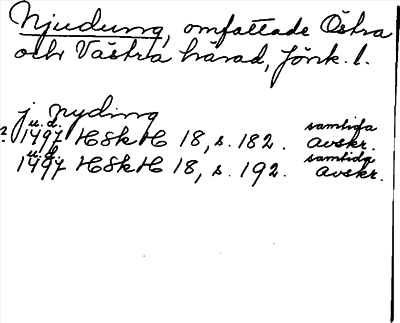 Njudung, omfattade Östra
och Västra härad, Jönk. l.
j nyding
u. d. samtida
? 1497 HSkH 18, s. 182. avskr.
u. d. samtida
1497 HSkH 18, s. 192. avskr.